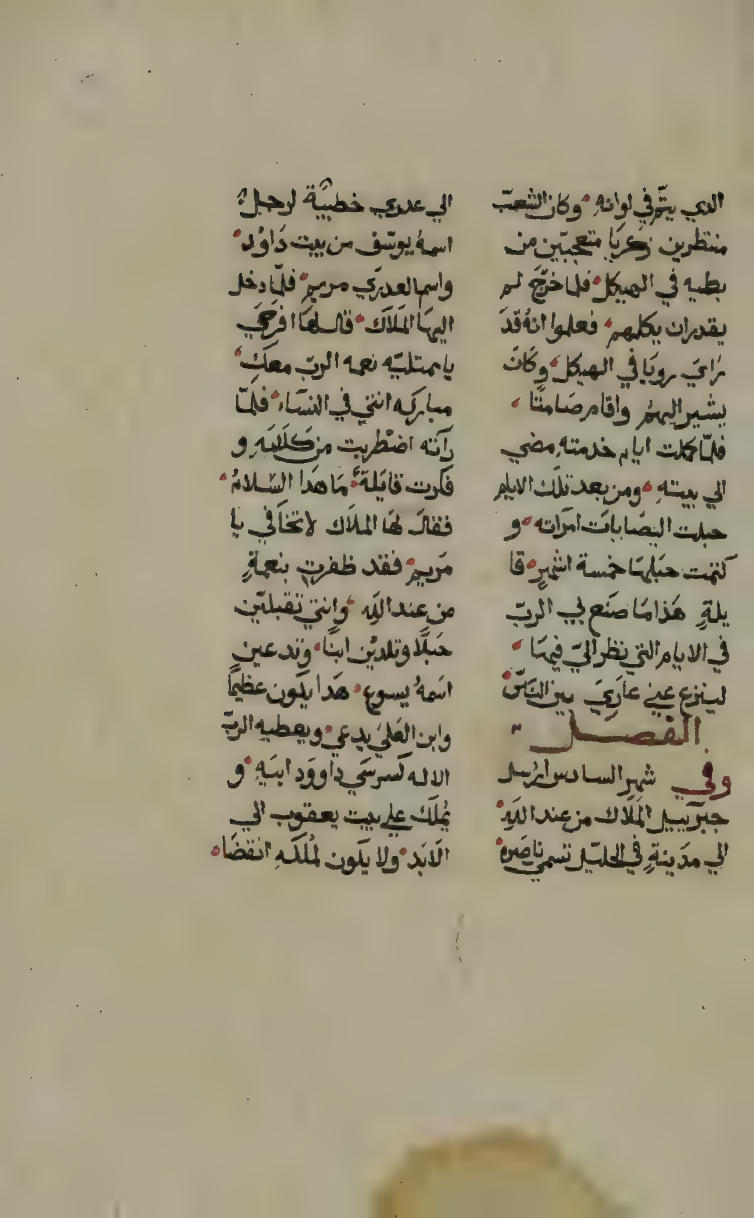 الدي يتم في اوانه وكان الشعب
منتظرين زخريا متعجبين من
بطيه في الهيكل فلما خرج لم
يقدران يكلهم فعلموا انه قد
راي رويا في الهيكل وكان
يشير اليهم واقام صامتا
فلما كملت ايام خدمته مضي
الي بيته ومن بعد تلك الايام
حبلت اليصابات امراته و
كتمت حبلها خمسة اشهر قا
يلة هذا ما صنع بي الرب
في الايام التي نظر الي فيها
لينزع عني عاري بين الناس
الفصل
وفي شهر السادس ارسل
جبراييل الملاك من عند الله
الي مدينة في الجليل تسمي ناصره
الي عدري خطيبة لرجل
اسمه يوسف من بيت داود
واسم العدري مريم فلما دخل
اليها الملاك قال لها افرحي
يا ممتليه نعمه الرب معك
مباركه انتي في النساء فلما
رأته اضطربت من كلامه و
فكرت قايلة ما هدا السلام
فقال لها الملاك لا تخافي يا
مريم فقد ظفرت بنعمة
من عند الله وانتي تقبلين
حبلا وتلدين ابنا وتدعين
اسمه يسوع هدا يكون عظيما
وابن العلي يدعي ويعطيه الرب
الاله كرسي داوود ابيه و
يملك علي بيت يعقوب الي
الابد ولا يكون لملكه انقضاء